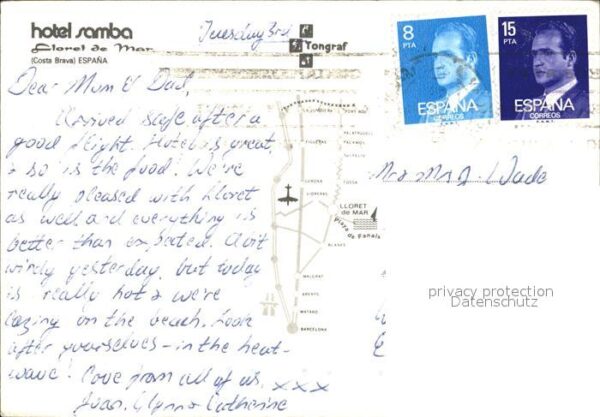 hotel samba
Lloret de Mar
(Costa Brava) ESPAÑA
Tuesday 3rd
Tongraf
8
PTA
ESPAÑA
CORREOS
15
PTA
ESPAÑA
CORREOS
Dear Mum & Dad,
Arrived safe after a
good flight. Hotel is great,
& so is the food. We're
really pleased with Lloret
as well and everything is
better than expected. A bit
windy yesterday, but today
is really hot & we're
lazing on the beach. Look
after yourselves - in the heat-
wave! Love from all of us, xxx
Glynn & Catherine
FIGUERAS
PALAFRUGELL
PALAMOS
GERONA
TOSSA
LLORET
de MAR
Playa de Fanals
BLANES
MALGRAT
ARENYS
MATARO
BARCELONA
Mr & Mrs J. Wade
privacy protection
Datenschutz